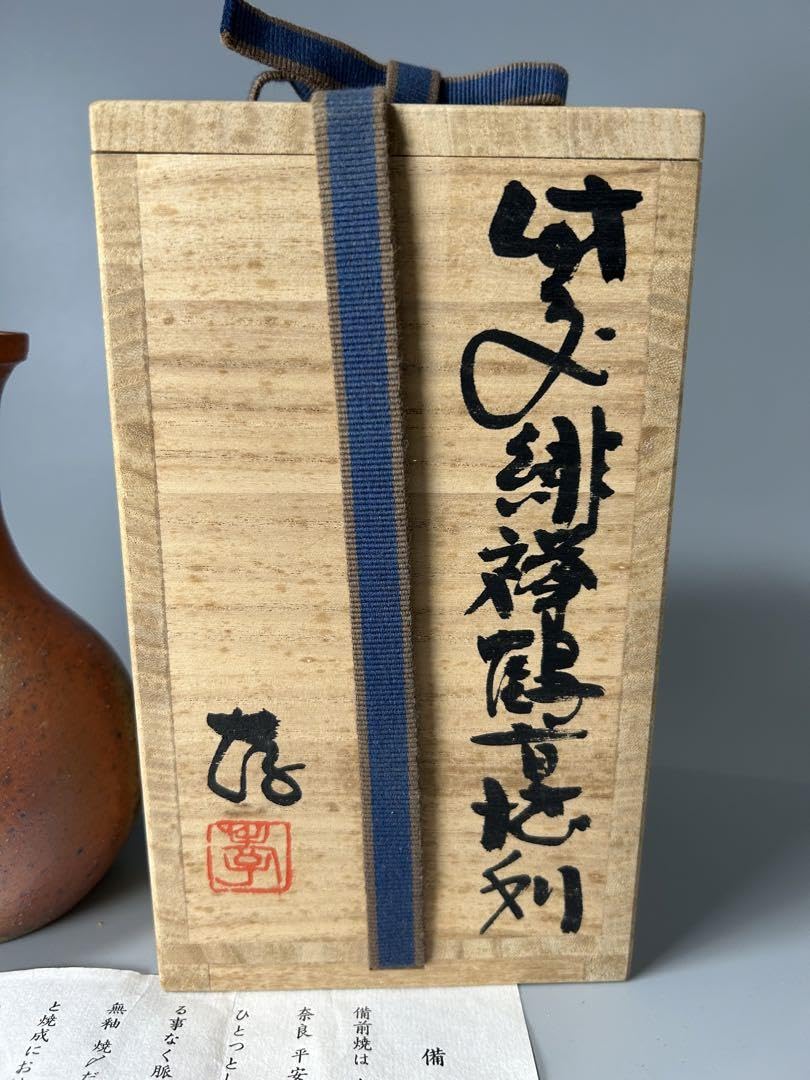 備前緋襷鶴首徳利
雄
備
備前焼は
奈良 平安
ひとつとし
る事なく脈
無釉 焼〆だ
と焼成にお